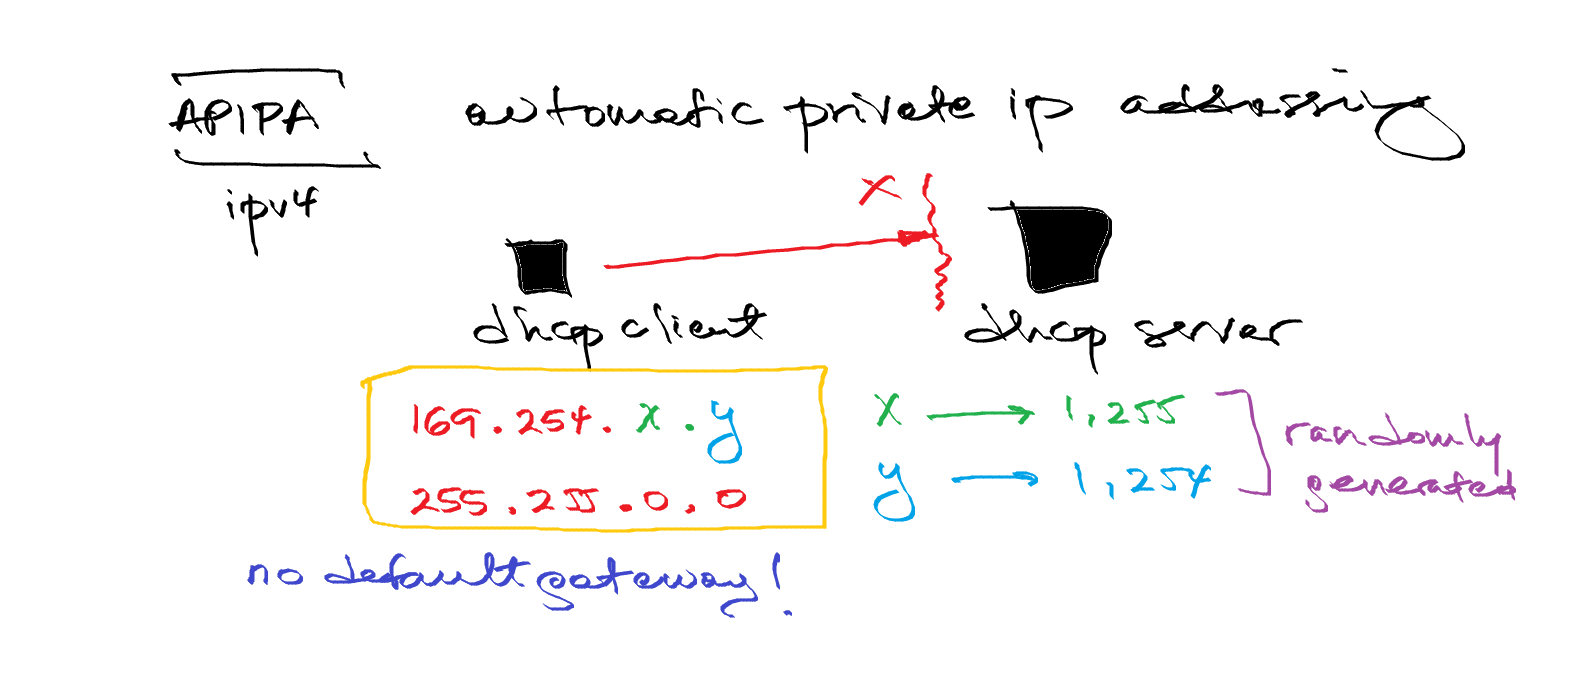 APIPA automatic private ip addressing
ipv4
X
dhcp client dhcp server
169.254.x.y
255.255.0.0
x → 1,255
y → 1,254
randomly
generated
no default gateway!